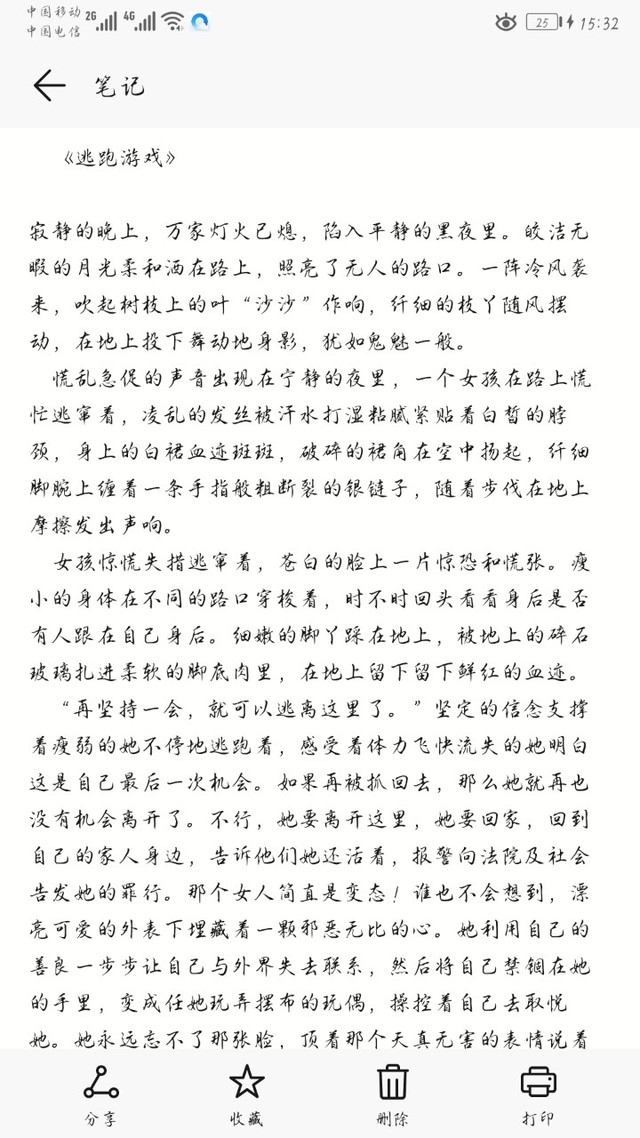 中国移动 2G 4G
中国电信
25
15:32
笔记
《逃跑游戏》
寂静的晚上，万家灯火已熄，陷入平静的黑夜里。皎洁无
暇的月光柔和洒在路上，照亮了无人的路口。一阵冷风袭
来，吹起树枝上的叶“沙沙”作响，纤细的枝丫随风摆
动，在地上投下舞动地身影，犹如鬼魅一般。
慌乱急促的声音出现在宁静的夜里，一个女孩在路上慌
忙逃窜着，凌乱的发丝被汗水打湿粘腻紧贴着白皙的脖
颈，身上的白裙血迹斑斑，破碎的裙角在空中扬起，纤细
脚腕上缠着一条手指般粗断裂的银链子，随着步伐在地上
摩擦发出声响。
女孩惊慌失措逃窜着，苍白的脸上一片惊恐和慌张。瘦
小的身体在不同的路口穿梭着，时不时回头看看身后是否
有人跟在自己身后。细嫩的脚丫踩在地上，被地上的碎石
玻璃扎进柔软的脚底肉里，在地上留下留下鲜红的血迹。
“再坚持一会，就可以逃离这里了。”坚定的信念支撑
着瘦弱的她不停地逃跑着，感受着体力飞快流失的她明白
这是自己最后一次机会。如果再被抓回去，那么她就再也
没有机会离开了。不行，她要离开这里，她要回家，回到
自己的家人身边，告诉他们她还活着，报警向法院及社会
告发她的罪行。那个女人简直是变态！谁也不会想到，漂
亮可爱的外表下埋藏着一颗邪恶无比的心。她利用自己的
善良一步步让自己与外界失去联系，然后将自己禁锢在她
的手里，变成任她玩弄摆布的玩偶，操控着自己去取悦
她。她永远忘不了那张脸，顶着那个天真无害的表情说着
分享
收藏
删除
打印